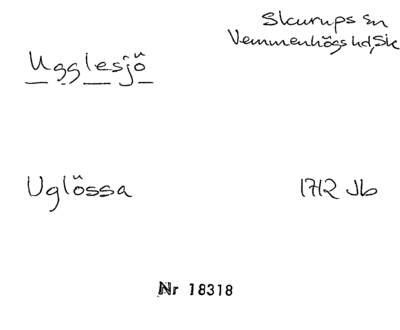 Skurups sn
Vemmenhögs hd, Sk
Ugglesjö
Uglössa
1712 Jb
Nr 18318